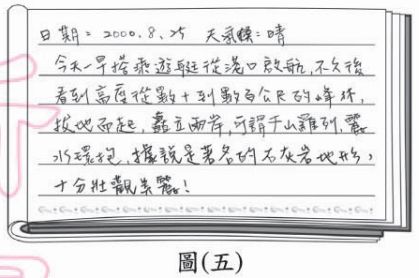 日期：2000.8.25 天氣候：晴
今天一早搭乘遊艇從港口啟航，不久後
看到高度從數十到數百公尺的峰林，
拔地而起，矗立兩岸，可謂千山羅列，麗
水環抱，據說是著名的石灰岩地形，
十分壯觀美麗！
圖(五)